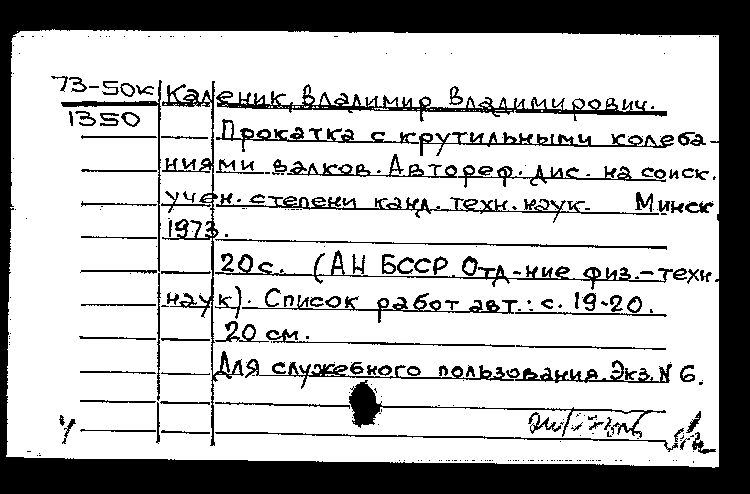 73-50к Каленик, Владимир Владимирович.
1350
Прокатка с крутильными колеба-
ниями валков. Автореф. дис. на соиск.
учен. степени канд. техн. наук. Минск,
1973.
20с. (АН БССР. Отд-ние физ.-техн.
наук). Список работ авт.: с. 19-20.
20 см.
Для служебного пользования. Экз. N 6.
У